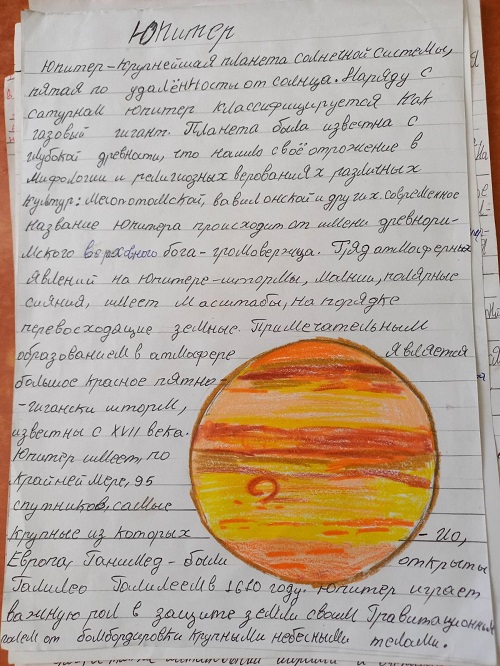 Юпитер
Юпитер-крупнейшая планета солнечной системы,
пятая по удалённости от солнца. Наряду с
сатурнам Юпитер классифицируется как
газовый гигант. Планета была известна с
глубокой древности, что нашло своё отрожение в
мифологии и религиозных верованиях различных
культур: Месопотомской, вавилонской и других. современное
название Юпитера происходит от имени древнори-
мского верховного бога-громовержца. Ряд атмосферных
явлений на Юпитере-штормы, молнии, полярные
сияния, имеет масштабы, на порядке
перевосходящие земные. Примечательным
образованием в атмосфере является
большое красное пятно-
-гигански шторм,
известны с XVII века.
Юпитер имеет, по
крайней мере, 95
спутников, самые
крупные из которых - Ио,
Европа, Ганимед - были открыты
Галилео Галилеем в 1610 году. Юпитер играет
важную рол в защите земли своим Гравитационным
полем от бомбордировки крупными небесными телами.